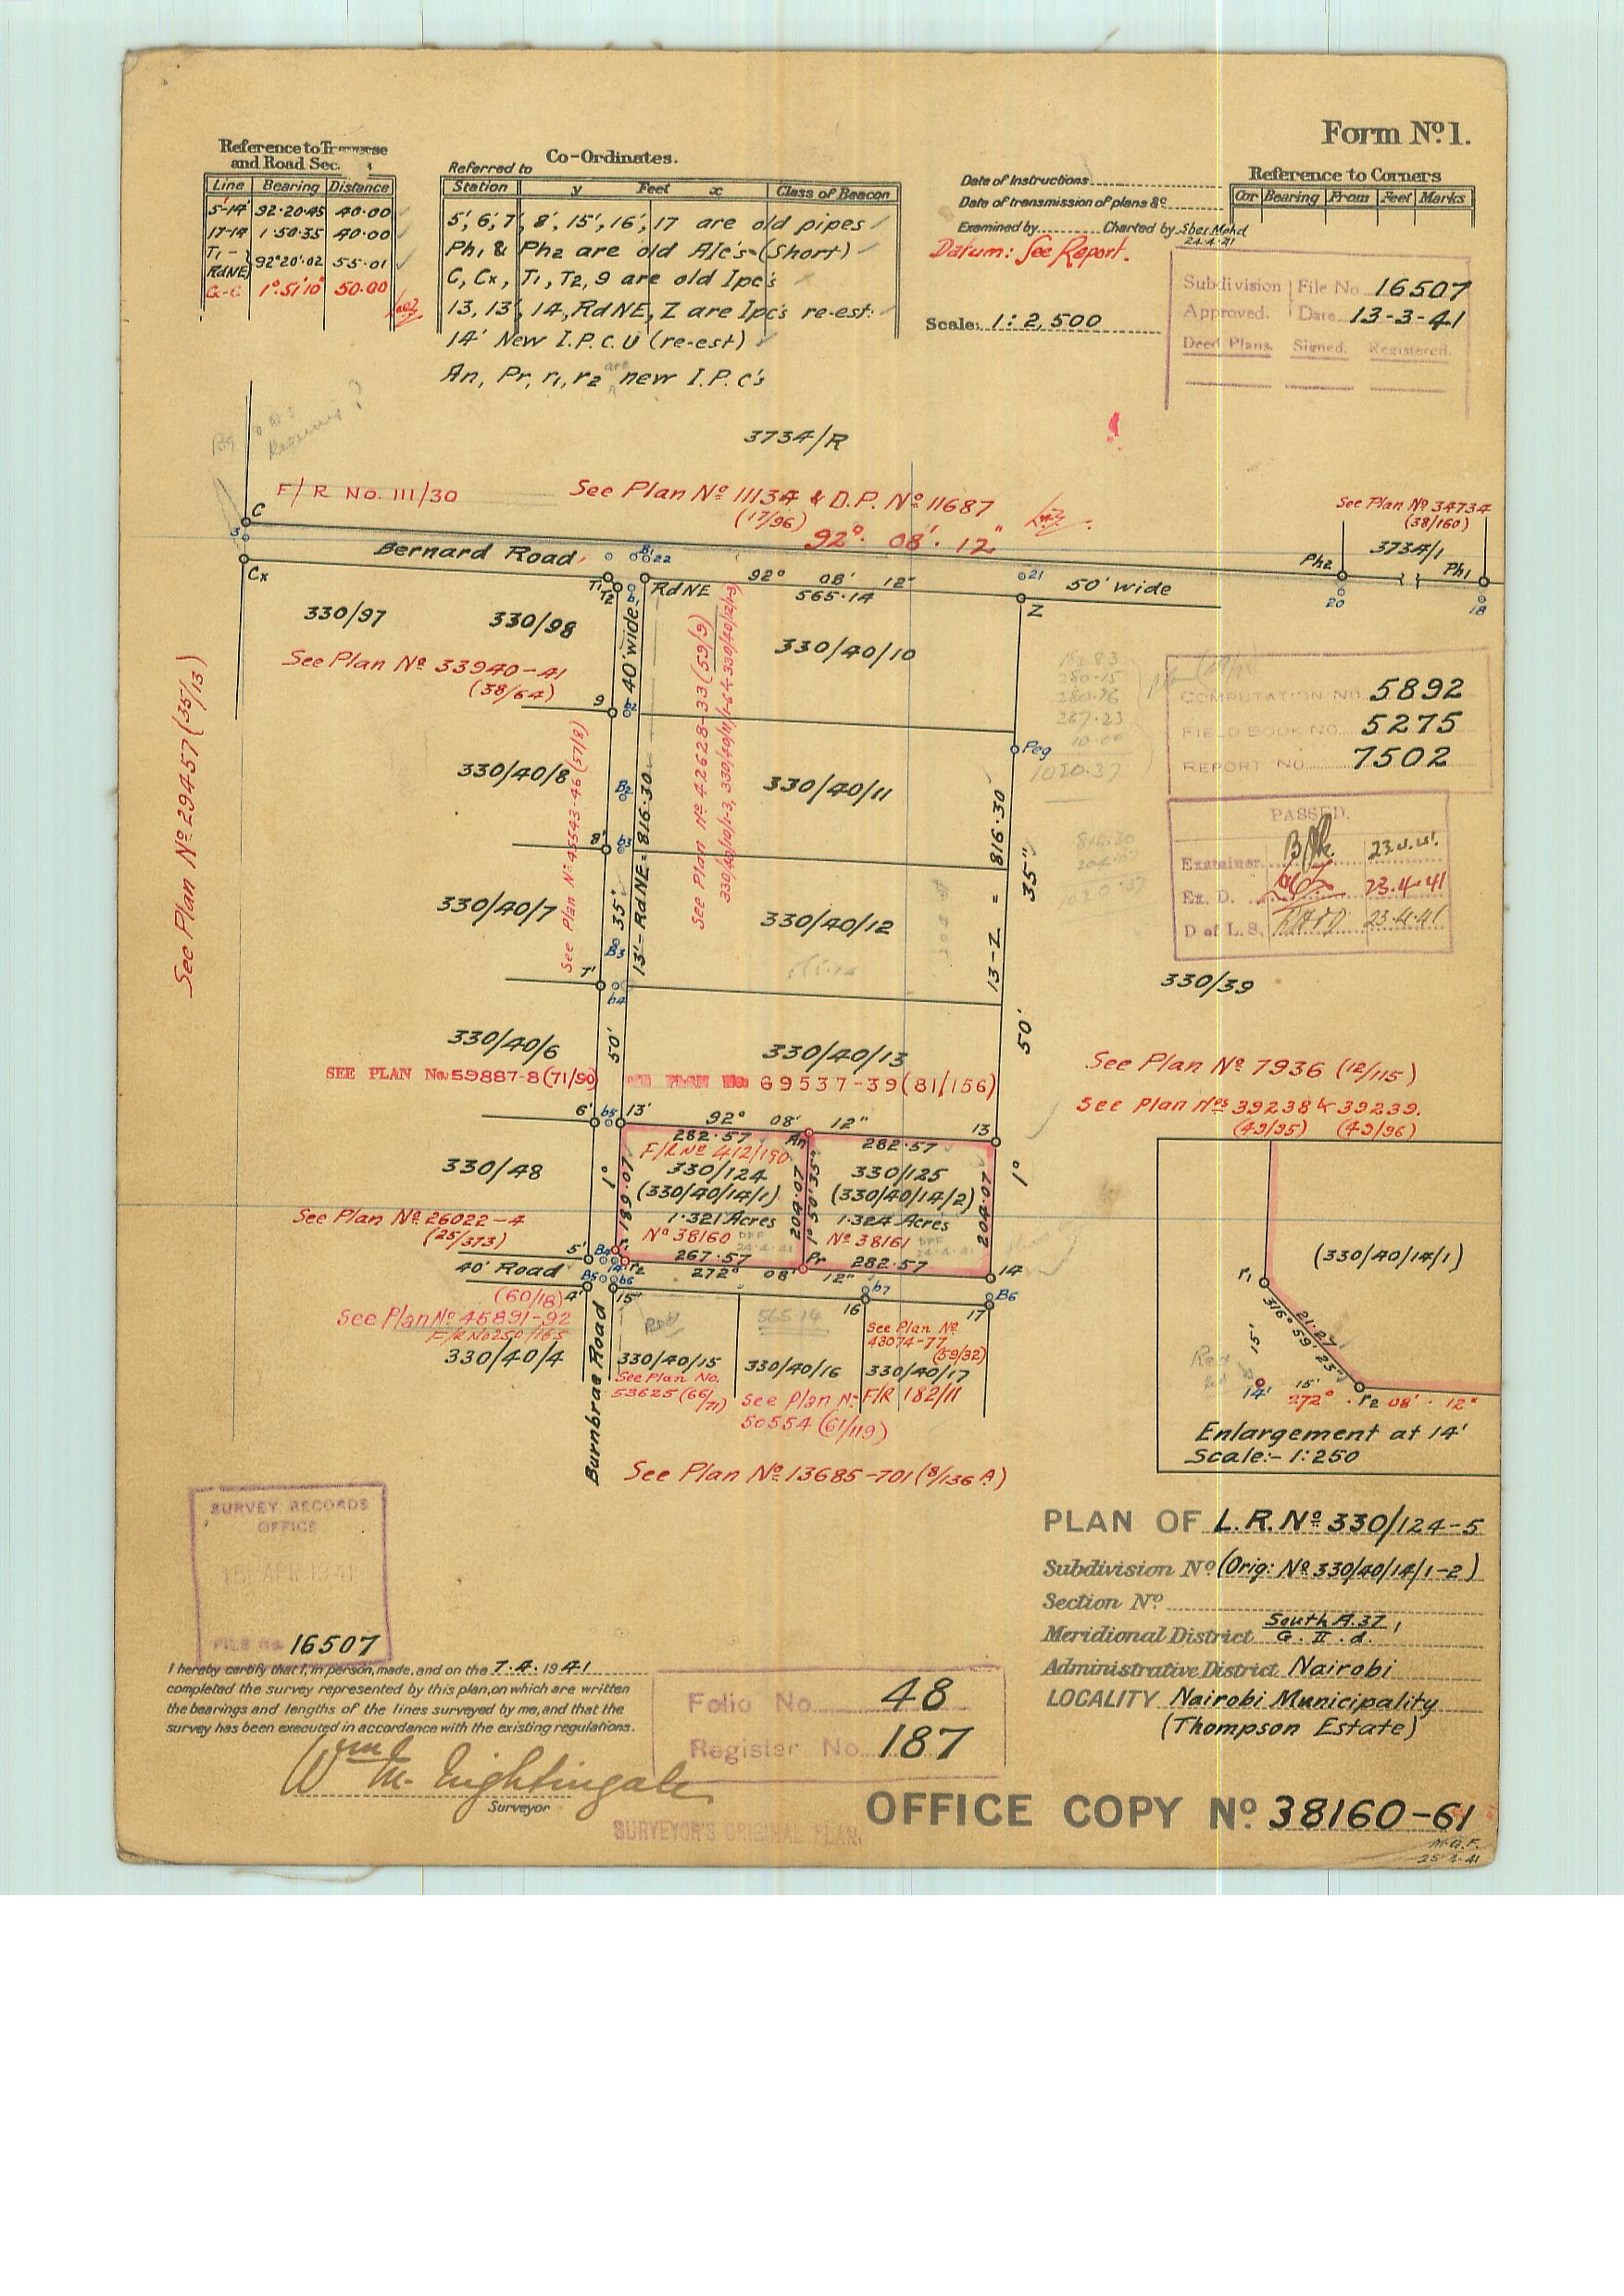 Form No. 1.
Reference to Traverse
and Road Sec.
Line Bearing Distance
5'-14' 92·20·45 40.00
17-14 1·50·35 40.00
T1 -
RdNE 92°20'·02 55·01
G-C 1°·51'10" 50.00
Co-Ordinates.
Referred to
Station y Feet x Class of Beacon
5', 6', 7', 8', 15', 16', 17 are old pipes
Ph1 & Ph2 are old A/c's (Short)
C, Cx, T1, T2, 9 are old Ipc's
13, 13', 14, RdNE, Z are Ipc's re-est:
14' New I.P.C.U (re-est)
An, Pr, r1, r2 are new I.P.c's
Date of Instructions
Date of transmission of plans &c
Examined by Charted by Sher Mohd
24.4.41
Datum: See Report.
Scale: 1:2,500
Reference to Corners
Cor Bearing From Feet Marks
Subdivision File No. 16507
Approved. Date 13-3-41
Deed Plans. Signed. Registered.
3734/R
F/R No. 111/30
See Plan No 11134 & D.P. No 11687
(17/96)
92° 08' 12"
See Plan No 34734
(38/160)
3734/1
C
3
Cx
Bernard Road
T1
T2
B1
22
b1
RdNE
92° 08' 12"
565.14
21
50' wide
Z
Ph2
Ph1
20
18
330/97
330/98
40' wide
330/40/10
See Plan No 33940-41
(38/64)
9
b2
See Plan No 29457 (35/13)
Peg
1020.37
COMPUTATION NO. 5892
FIELD BOOK NO. 5275
REPORT NO. 7502
330/40/8
See Plan No 45543-46 (57/8)
B2
13'-RdNE = 816.30
See Plan No 42628-33 (59/9)
330/40/11
13-Z = 816.30
8'
b3
PASSED.
Examiner 23.4.41
Ex. D. 23.4.41
D of L.S. 23.4.41
330/40/7
35"
B3
330/40/12
35"
7'
b4
330/39
330/40/6
50'
330/40/13
50'
SEE PLAN No. 59887-8 (71/90)
SEE PLAN No. 69537-39 (81/156)
See Plan No 7936 (12/115)
See Plan Nos 39238 & 39239.
(43/95) (43/96)
6' b5 13'
92° 08' 12"
13
282.57 An 282.57
F/R No 412/190
330/48
1°
189.07
330/124
(330/40/14/1)
1.321 Acres
No 38160
204.07
1° 50' 35"
330/125
(330/40/14/2)
1.324 Acres
No 38161
204.07
1°
DPF
24-4-41
DPF
24-4-41
See Plan No 26022-4
(25/373)
5' B4 r1
14' r2
267.57 Pr 282.57
14
40' Road
B5 b6
272° 08' 12"
4' 15'
b7
16
17
B6
(60/18)
See Plan No 45891-92
F/R No 250/165
330/40/4
Burnbrae Road
330/40/15
See Plan No.
53625 (66/71)
565.14
330/40/16
See Plan No
50554 (61/119)
See Plan No
43074-77
(59/32)
330/40/17
F/R 182/11
See Plan No 13685-701 (8/136 A)
(330/40/14/1)
r1
21.27
316° 59' 23"
15'
14'
15'
272° r2 08' 12"
Enlargement at 14'
Scale:- 1:250
SURVEY RECORDS
OFFICE
15 APR 1941
FILE No 16507
I hereby certify that I, in person, made, and on the 7.4.1941
completed the survey represented by this plan, on which are written
the bearings and lengths of the lines surveyed by me, and that the
survey has been executed in accordance with the existing regulations.
Wm M. Nightingale
Surveyor
SURVEYOR'S ORIGINAL PLAN.
Folio No. 48
Register No. 187
PLAN OF L.R. No 330/124-5
Subdivision No (Orig: No 330/40/14/1-2)
Section No
Meridional District South A.37,
G. II. d.
Administrative District Nairobi
LOCALITY Nairobi Municipality
(Thompson Estate)
OFFICE COPY No 38160-61